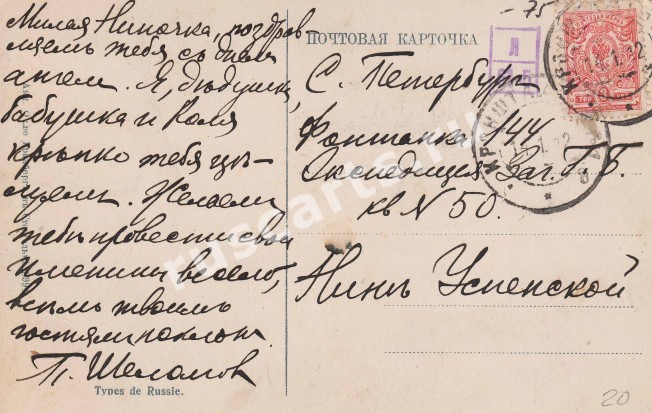 Милая Ниночка, поздрав
ляемъ тебя съ днем
ангел. Я, дѣдушка,
бабушка и Коля
крѣпко тебя цѣ-
луем. Желаем
тебѣ провести свои
именины весело,
всѣмъ твоимъ
гостям поклон.
П. Шеламов
Types de Russie.
ПОЧТОВАЯ КАРТОЧКА
-75
Л
С. Петербург
Фонтанка 144
Экспедиция Заг. Г. Б.
кв N 50.
Нинѣ Успенской
КРОНШ
20
rusearts.ru